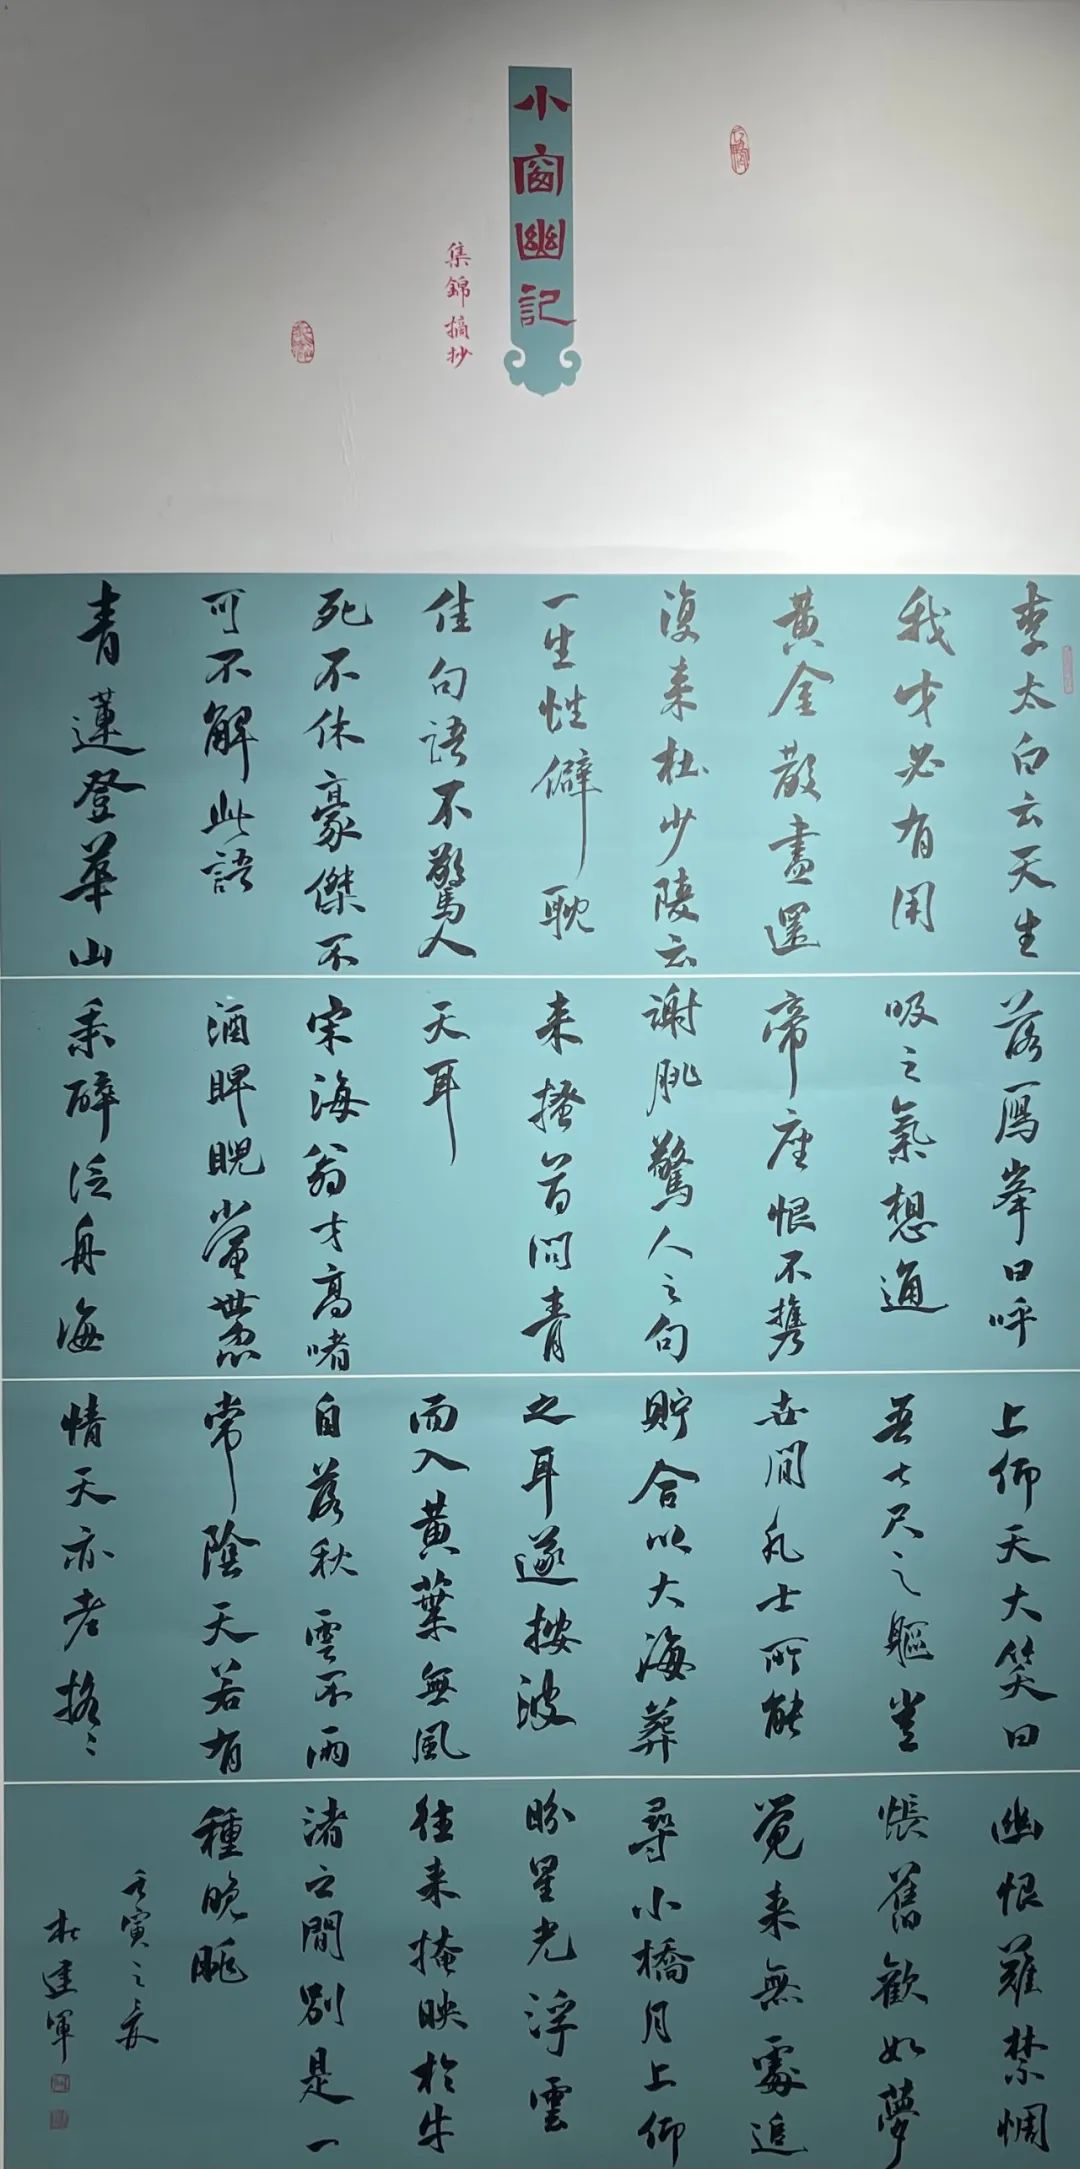 小窗幽記
集錦摘抄
李太白云天生
我才必有用
黄金散盡還
復来杜少陵云
一生性僻耽
佳句語不驚人
死不休豪傑不
可不解此語
青蓮登華山
落鴈峯曰呼
吸之氣想通
帝座恨不携
謝朓驚人之句
来搔首問青
天耳
宋海翁才高嗜
酒睥睨當世忽
乘醉泛舟海
上仰天大笑曰
吾七尺之軀豈
世間凡士所能
貯合以大海葬
之耳遂按波
而入黄葉無風
自落秋雲不雨
常陰天若有
情天亦老摇〻
幽恨難禁惆
悵舊歡如夢
覚来無處追
尋小橋月上仰
盼星光浮雲
往来掩映於牛
渚之間别是一
種晚眺
壬寅之夏
杜建軍